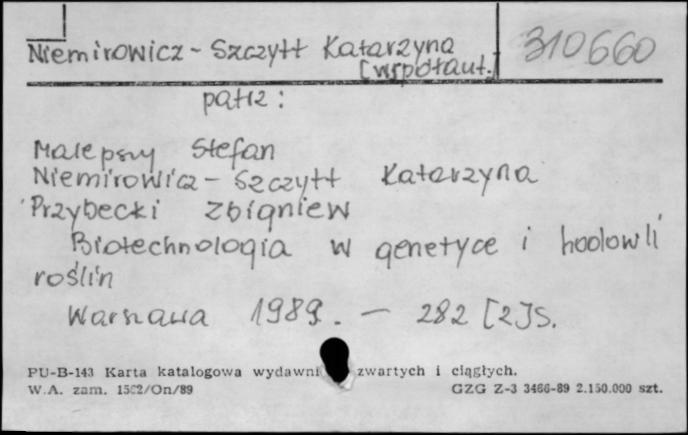 Niemirowicz - Szczytt Katarzyna 310660
[współaut.]
patrz :
Malepszy Stefan
Niemirowicz - Szczytt Katarzyna
Przybecki Zbigniew
Biotechnologia w genetyce i hodowli
roślin
Warszawa 1989. - 282 [2]s.
PU-B-143 Karta katalogowa wydawni zwartych i ciągłych.
W.A. zam. 1562/On/89 GZG Z-3 3466-89 2.150.000 szt.